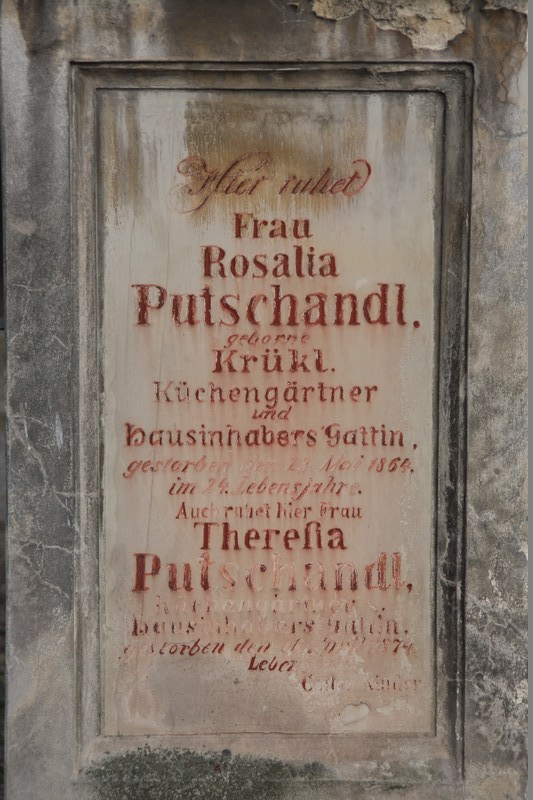 Hier ruhet
Frau
Rosalia
Putschandl.
geborne
Krükl.
Küchengärtner
und
Hausinhabers Gattin,
gestorben Mai 1864.
im 24. Lebensjahre.
Auch ruhet hier Frau
Theresia
Putschandl,
Hausinhabers Gattin.
gestorben den April 1874